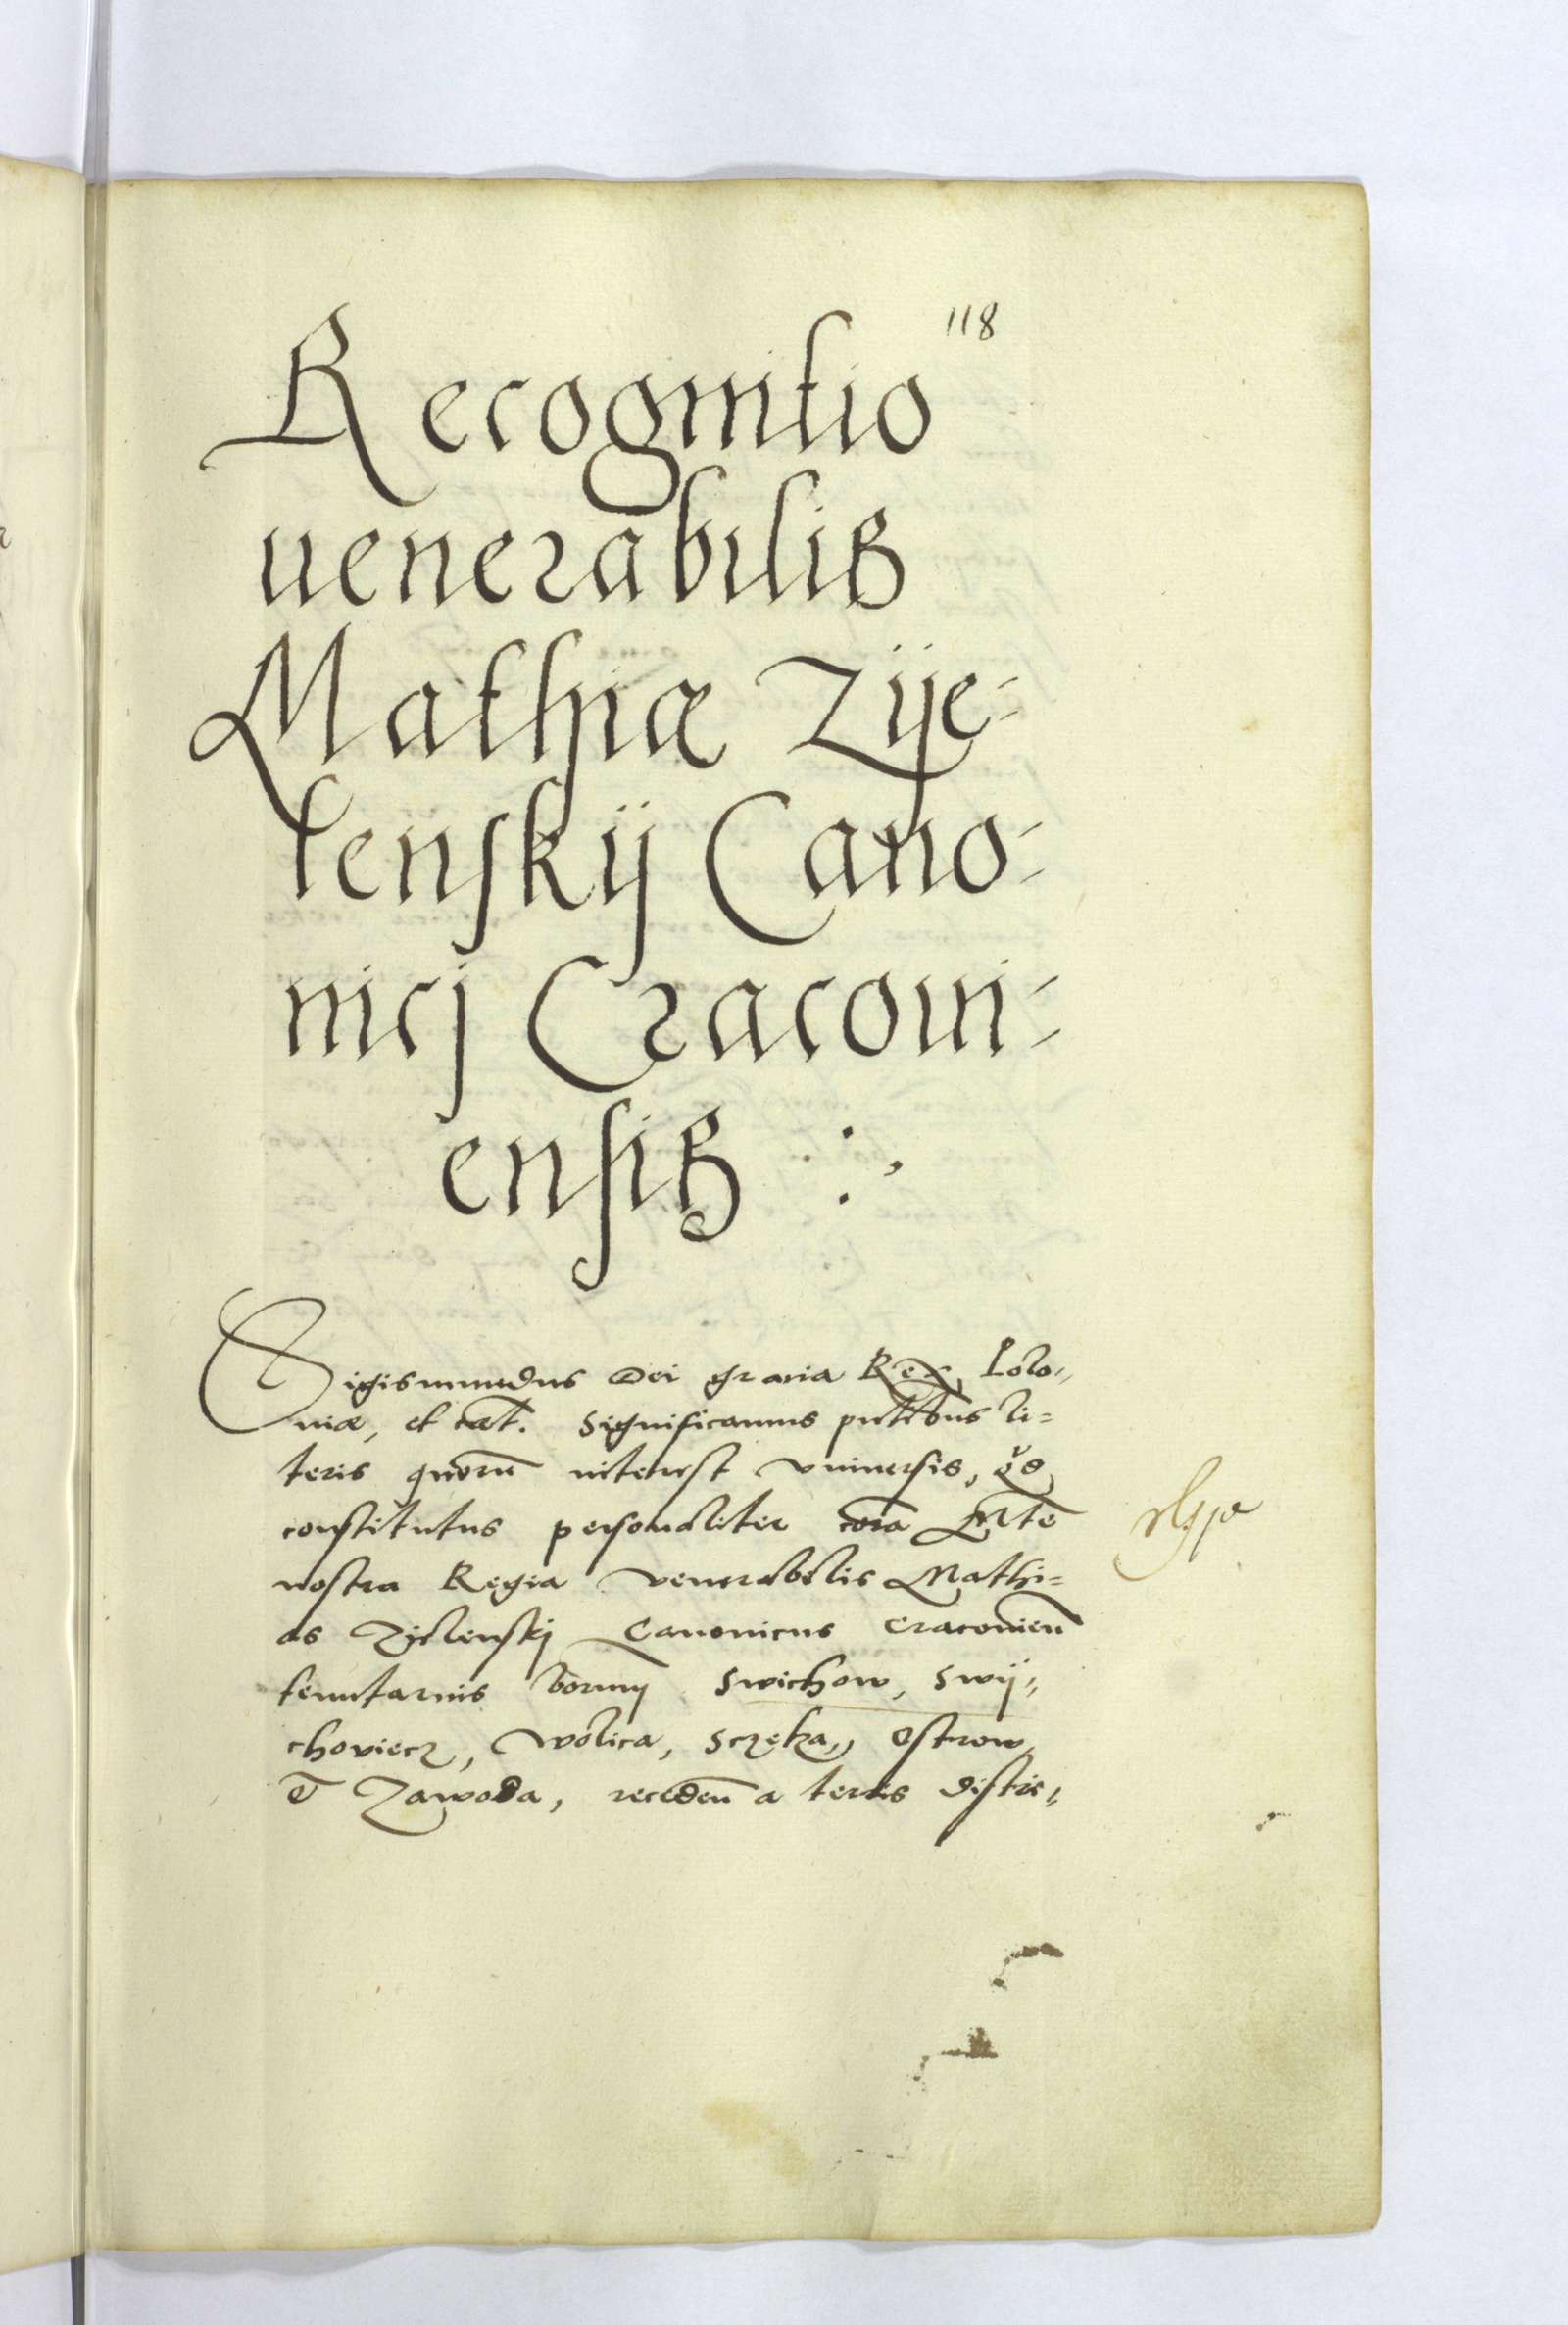 118
Recognitio
uenerabilis
Mathiæ Zÿe-
lenskÿ Cano-
nicj Cracoui-
ensis :,
Sigismundus Dei gracia Rex Polo„
niæ, et cæt. Significamus pntibus li=
teris quorũ interest vniuersis, qs
constitutus personaliter corã Mte
nostra Regia venerabilis Mathi=
as Zÿelenskj Canonicus Cracouien̄
tenutarius bonorum Swichow, Swÿ„
chowiecz, Wolica, Sczęka„ Ostrow,
et Zawoda, receden̄ a terris distri„